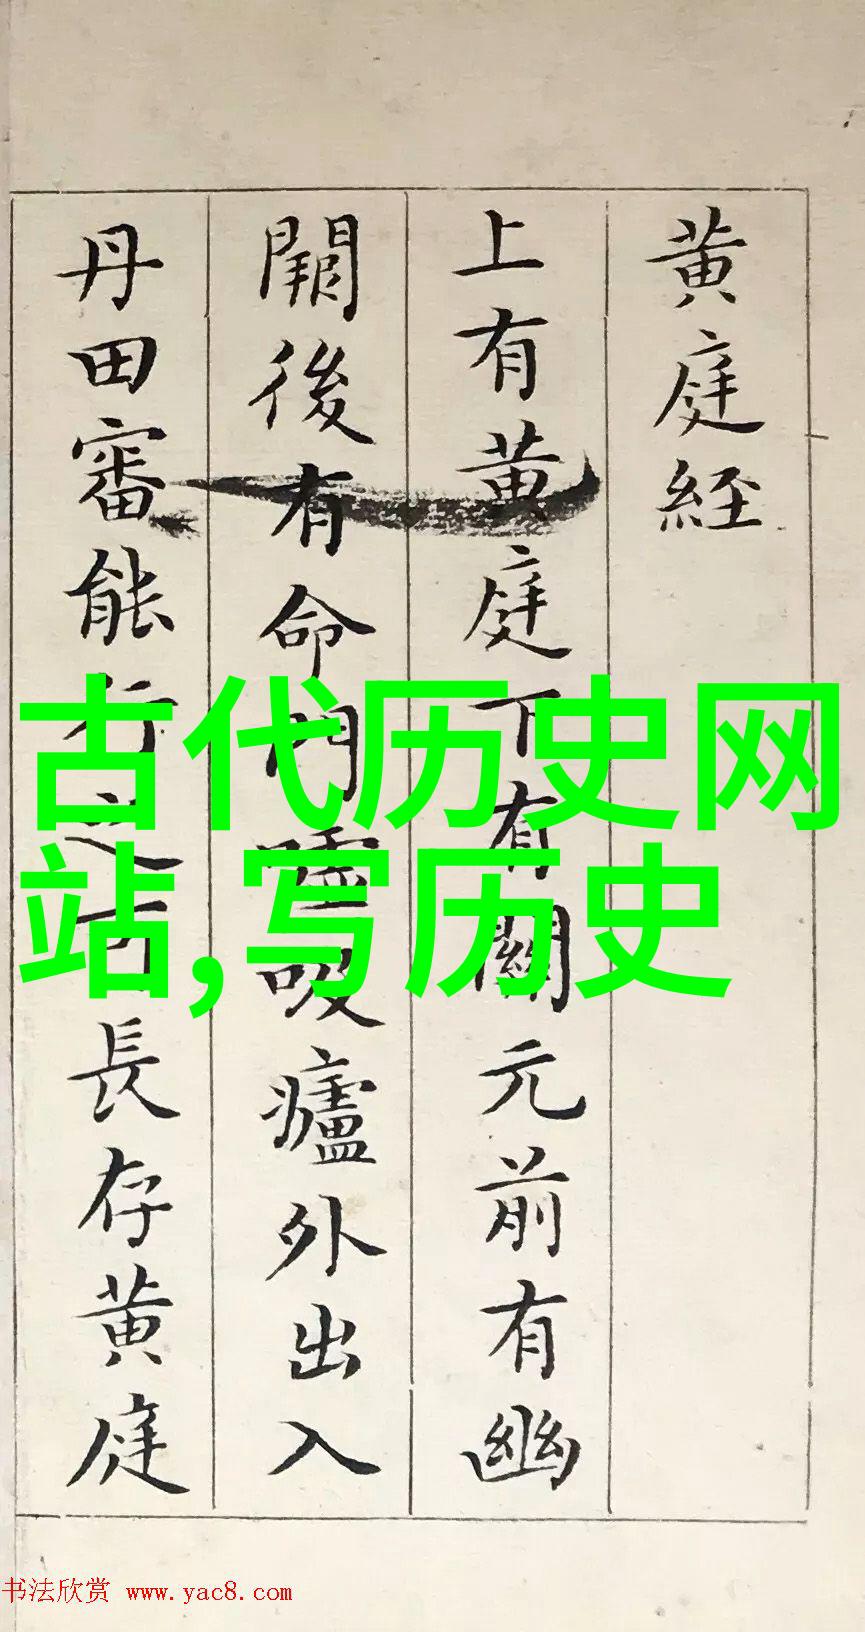 黄庭經
上有黄庭下有關元前有幽
闕後有命門噓吸廬外出入
丹田審能行之可長存黄庭
古代历史网
站,写历史
书法欣赏 www.yac8.com